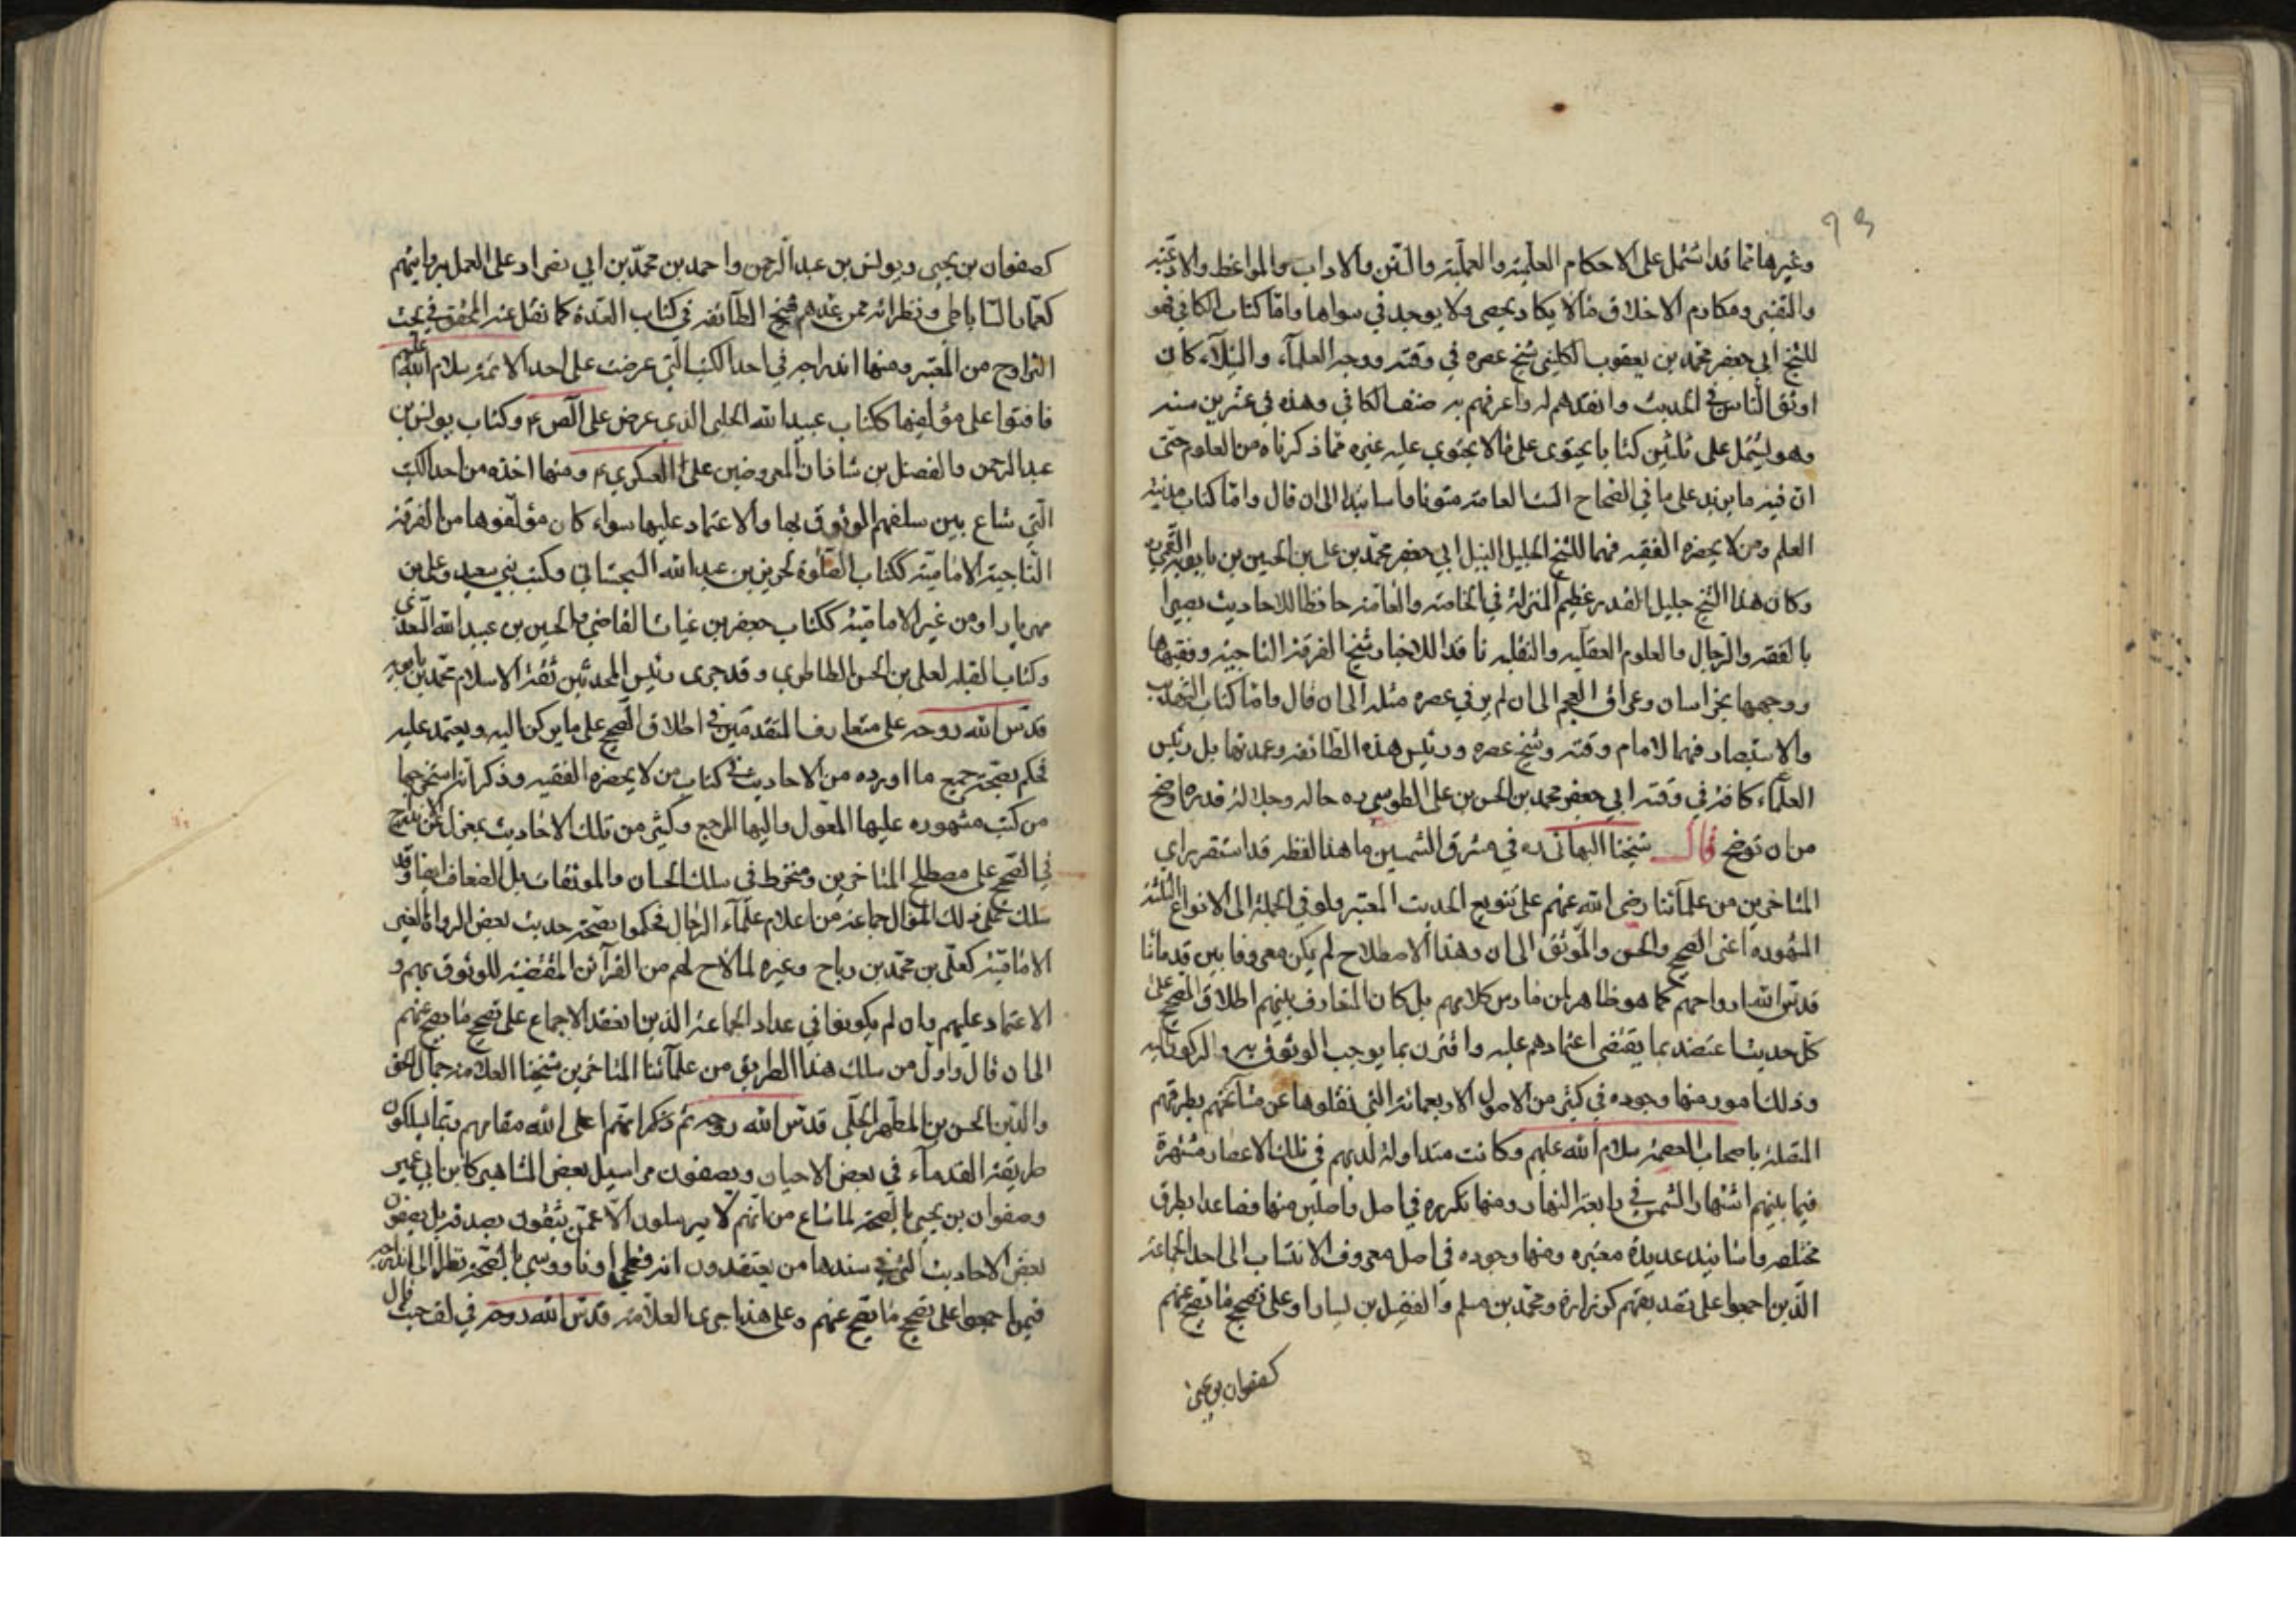 ٩٣
وغيرها مما قد اشتمل على الاحكام العلمية والعملية والسنن والاداب والمواعظ والادعية
والتفسير ومكارم الاخلاق ما لا يكاد يحصى ولا يوجد في سواها واما كتاب الكافي فهو
للشيخ ابي جعفر محمد بن يعقوب الكليني شيخ عصره في وقته ووجه العلماء والنبلاء كان
اوثق الناس في الحديث وانقدهم له واعرفهم به صنف الكافي وهذبه في عشرين سنه
وهو يشتمل على ثلثين كتابا يحتوى على ما لا يحتوي عليه غيره مما ذكرناه من العلوم حتى
ان فيه ما يزيد على ما في الصحاح الست العامة متونا واسانيدا الى ان قال واما كتاب مدينة
العلم ومن لا يحضره الفقيه فهما للشيخ الجليل النبيل ابي جعفر محمد بن علي بن الحسين بن بابويه القمي ره
وكان هذا الشيخ جليل القدر عظيم المنزلة في الخاصة والعامة حافظا للاحاديث بصيرا
بالفقه والرجال والعلوم العقليه والنقليه ناقدا للاخبار شيخ الفرقة الناجية وفقيهها
ووجهها بخراسان وعراق العجم الى ان لم ير في عصره مثله الى ان قال واما كتاب التهذيب
والاستبصار فهما لامام وقته وشيخ عصره ورئيس هذه الطائفة وعمدتها بل رئيس
العلماء كافة في وقته ابي جعفر محمد بن الحسن بن علي الطوسي ره حاله وجلالة قدره اوضح
من ان توضح قال شيخنا البهائى ره في مشرق الشمسين ما هذا لفظه قد استقر راي
المتاخرين من علمائنا رضي الله عنهم على تنويع الحديث المعتبر ولو في الجملة الى الانواع الثلثة
المشهوره اعنى الصحيح والحسن والموثق الى ان وهذا الاصطلاح لم يكن معروفا بين قدمائنا
قدس الله ارواحهم كما هو ظاهر لمن مارس كلامهم بل كان المتعارف بينهم اطلاق الصحيح على
كل حديث اعتضد بما يقتضى اعتمادهم عليه واقترن بما يوجب الوثوق به والركون اليه
وذلك امور منها وجوده في كثير من الاصول الاربعمائة التي نقلوها عن مشائخهم بطرقهم
المتصلة باصحاب العصمة سلام الله عليهم وكانت متداولة لديهم في تلك الاعصار مشتهرة
فيما بينهم اشتهار الشمس في رابعة النهار ومنها تكرره في اصل واصلين منها فصاعدا بطرق
مختلفه واسانيد عديدة معتبره ومنها وجوده في اصل معروف الانتساب الى احد الجماعة
الذين اجمعوا على تصديقهم كزرارة ومحمد بن مسلم والفضيل بن يسار او على تصحيح ما تصح عنهم
كصفوان بن يحيى
كصفوان بن يحيى ويونس بن عبد الرحمن واحمد بن محمد بن ابي نصر او على العمل بروايتهم
كعمار الساباطى ونظرائه ممن عدهم شيخ الطائفه في كتاب العدة كما نقل عنه المحقق في بحث
التراوح من المعتبر ومنها اندراجه في احد الكتب التي عرضت على احد الائمة سلام الله عليهم
فاثنوا على مؤلفيها ككتاب عبيد الله الحلبى الذي عرض على الص ع وكتاب يونس بن
عبد الرحمن والفضل بن شاذان المعروضين على العسكري ع ومنها اخذه من احد الكتب
التي شاع بين سلفهم الوثوق بها والاعتماد عليها سواء كان مؤلفوها من الفرقة
الناجية الامامية ككتاب الصلوة لحريز بن عبد الله السجستاني وكتب بني سعيد وعلى بن
مهزيار او من غير الامامية ككتاب حفص بن غياث القاضي والحسين بن عبيد الله السعدي
وكتاب القبله لعلى بن الحسن الطاطرى وقد جرى رئيس المحدثين ثقة الاسلام محمد بن بابويه
قدس الله روحه على متعارف المتقدمين في اطلاق الصحيح على ما يركن اليه ويعتمد عليه
فحكم بصحة جميع ما اورده من الاحاديث في كتاب من لا يحضره الفقيه وذكر انه استخرجها
من كتب مشهوره عليها المعول واليها المرجع وكثير من تلك الاحاديث بمعزل عن الاندراج
في الصحيح على مصطلح المتاخرين ومنخرط فى سلك الحسان والموثقات بل الضعاف ايضا وقد
سلك على ذلك المنوال جماعة من اعلام علماء الرجال فحكموا بصحة حديث بعض الرواة الغير
الامامية كعلى بن محمد بن رباح وغيره لما لاح لهم من القرآئن المقتضية للوثوق بهم و
الاعتماد عليهم وان لم يكونوا في عداد الجماعة الذين انعقد الاجماع على تصحيح ما يصح عنهم
الى ان قال واول من سلك هذا الطريق من علمائنا المتاخرين شيخنا العلامة جمال الحق
والدين الحسن بن المطهر الحلى قدس الله روحه ثم ذكر انهم اعلى الله مقامهم ربما يسلكون
طريقة القدماء في بعض الاحيان ويصفون مراسيل بعض المشاهير كابن ابي عمير
وصفوان بن يحيى بالصحة لما شاع من انهم لا يرسلون الا عمن يثقون بصدقه بل يصفون
بعض الاحاديث التي في سندها من يعتقدون انه فطحي او ناووسي بالصحة نظرا الى اندراجه
فيمن اجمعوا على تصحيح ما يصح عنهم وعلى هذا جرى العلامة قدس الله روحه في لف حيث قال